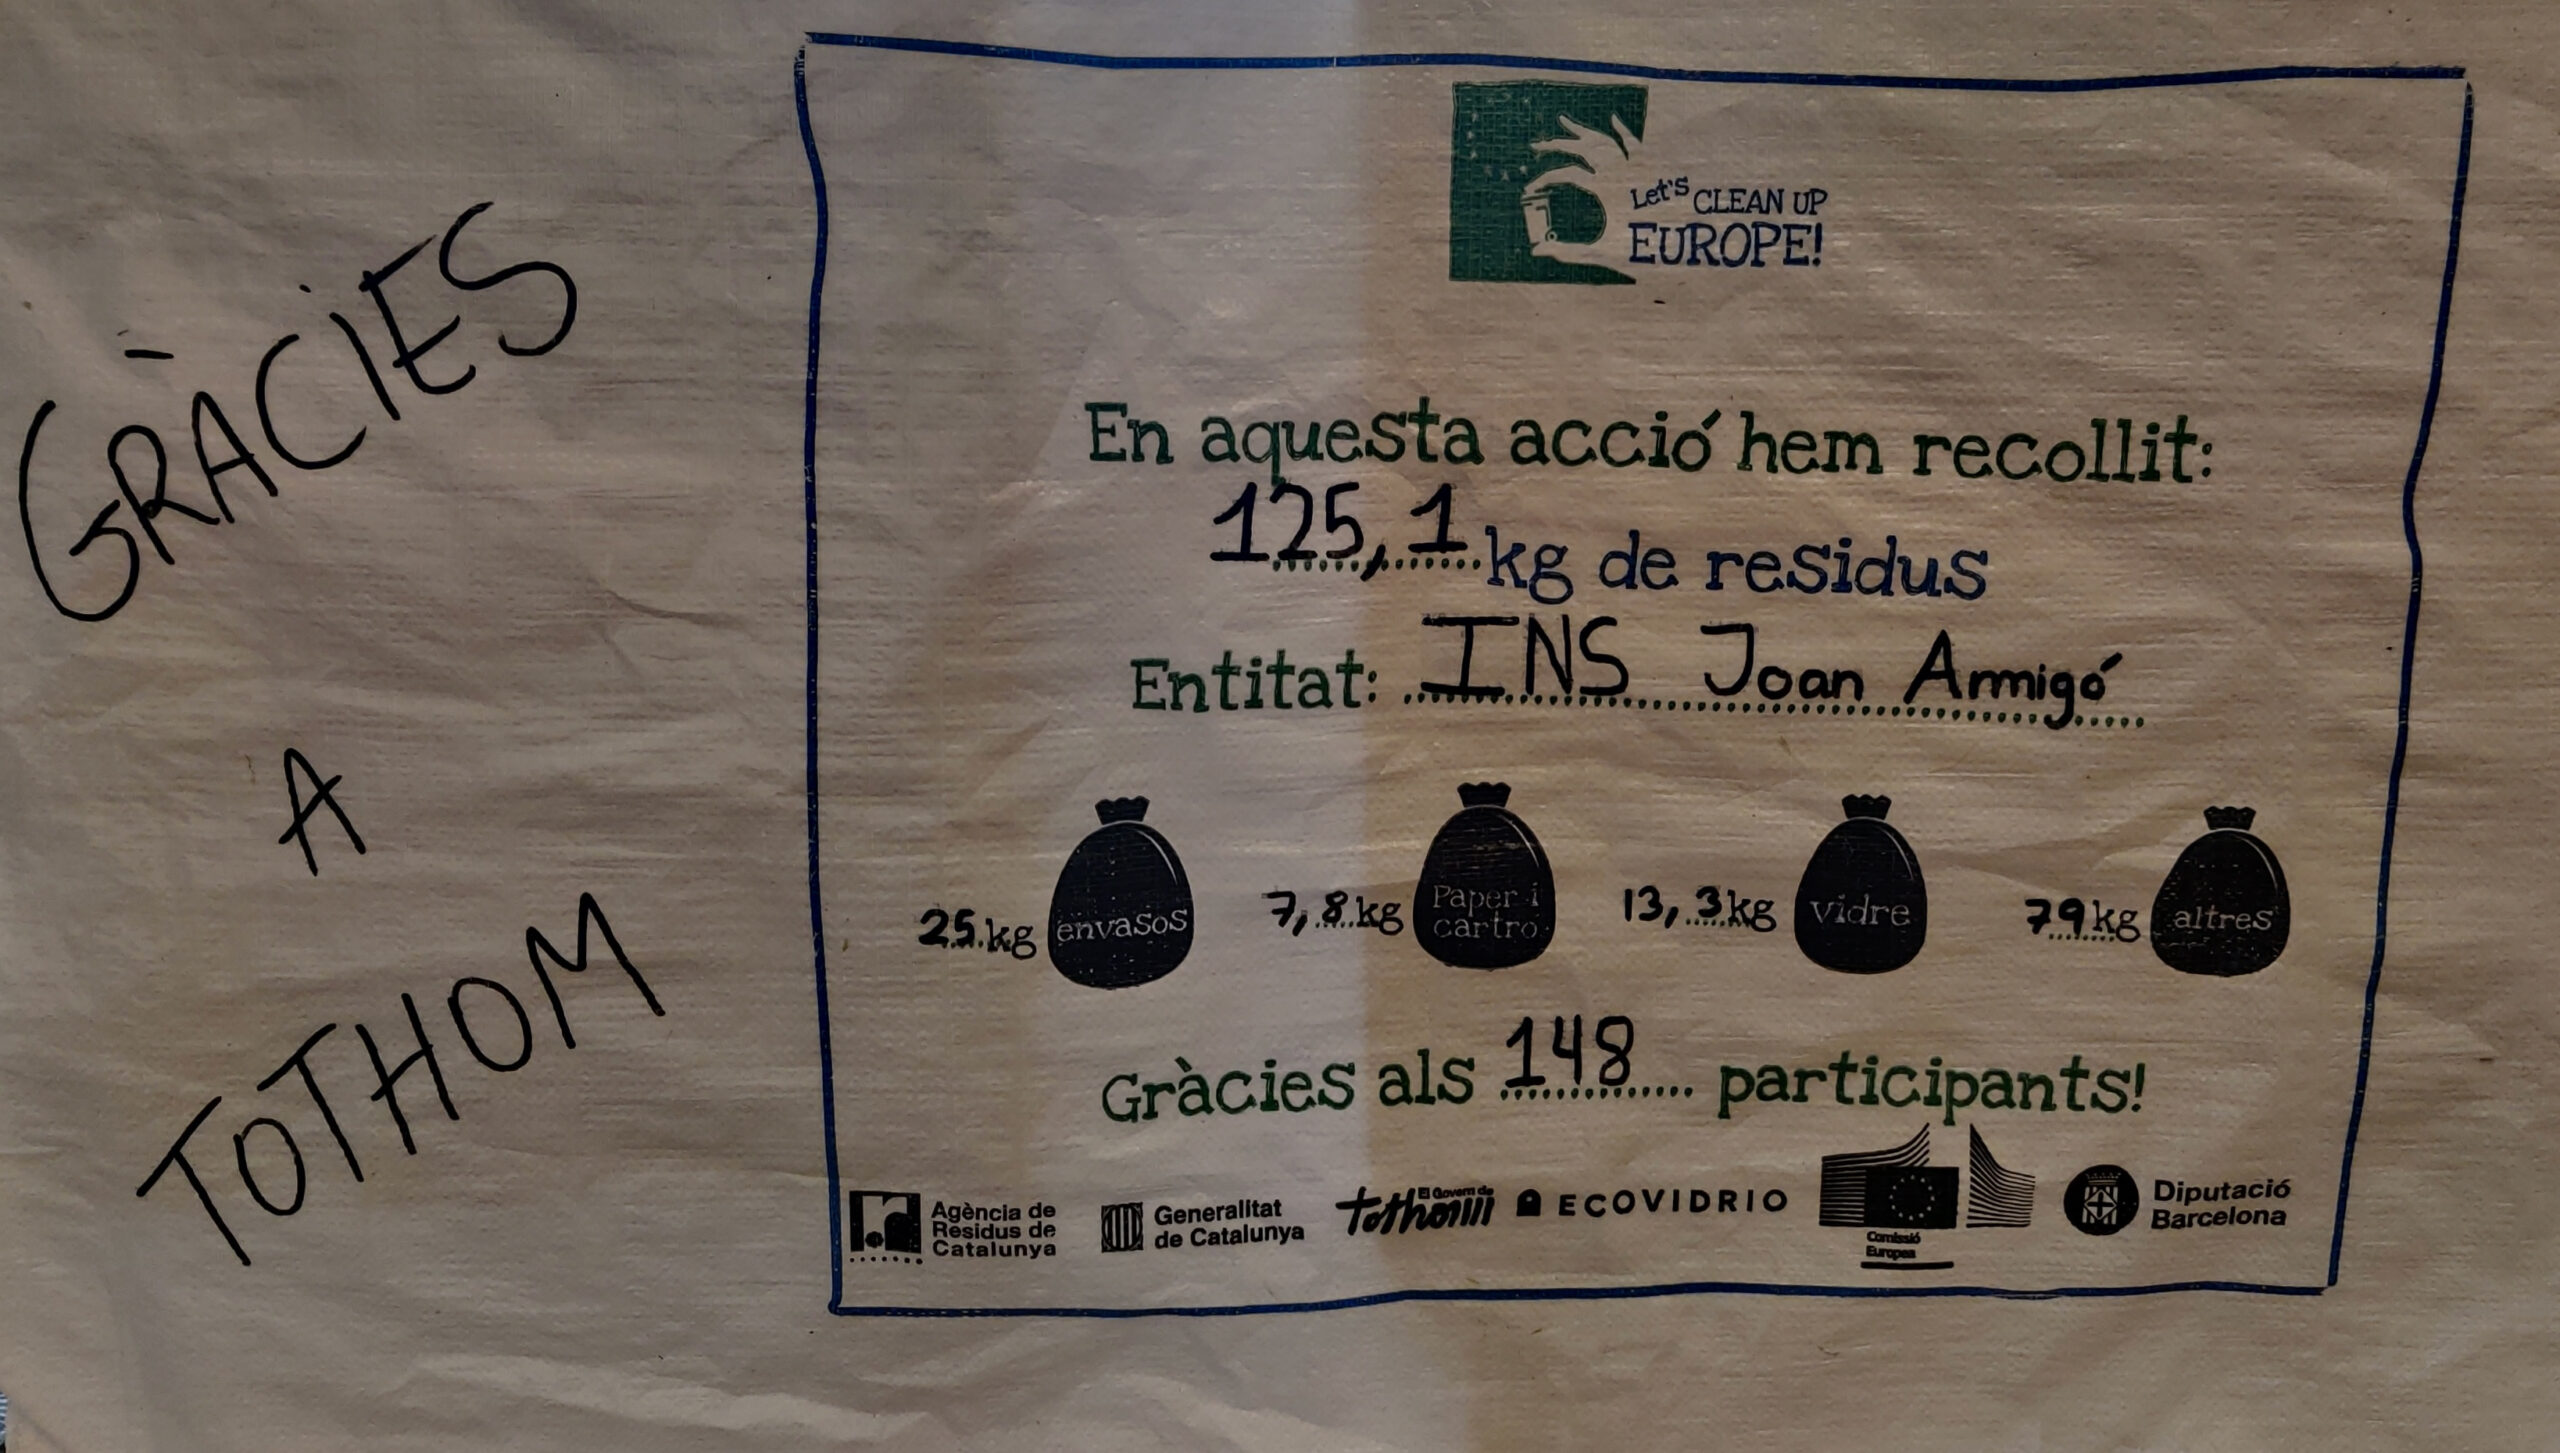 GRÀCIES
A
TOTHOM
Let's CLEAN UP
EUROPE!
En aquesta acció hem recollit:
125,1 kg de residus
Entitat: INS Joan Amigó
25 kg envasos
7,8 kg Paper i
cartro
13,3 kg vidre
79 kg altres
Gràcies als 148 participants!
Agència de
Residus de
Catalunya
Generalitat
de Catalunya
El Govern de
tothom
ECOVIDRIO
Comissió
Europea
Diputació
Barcelona